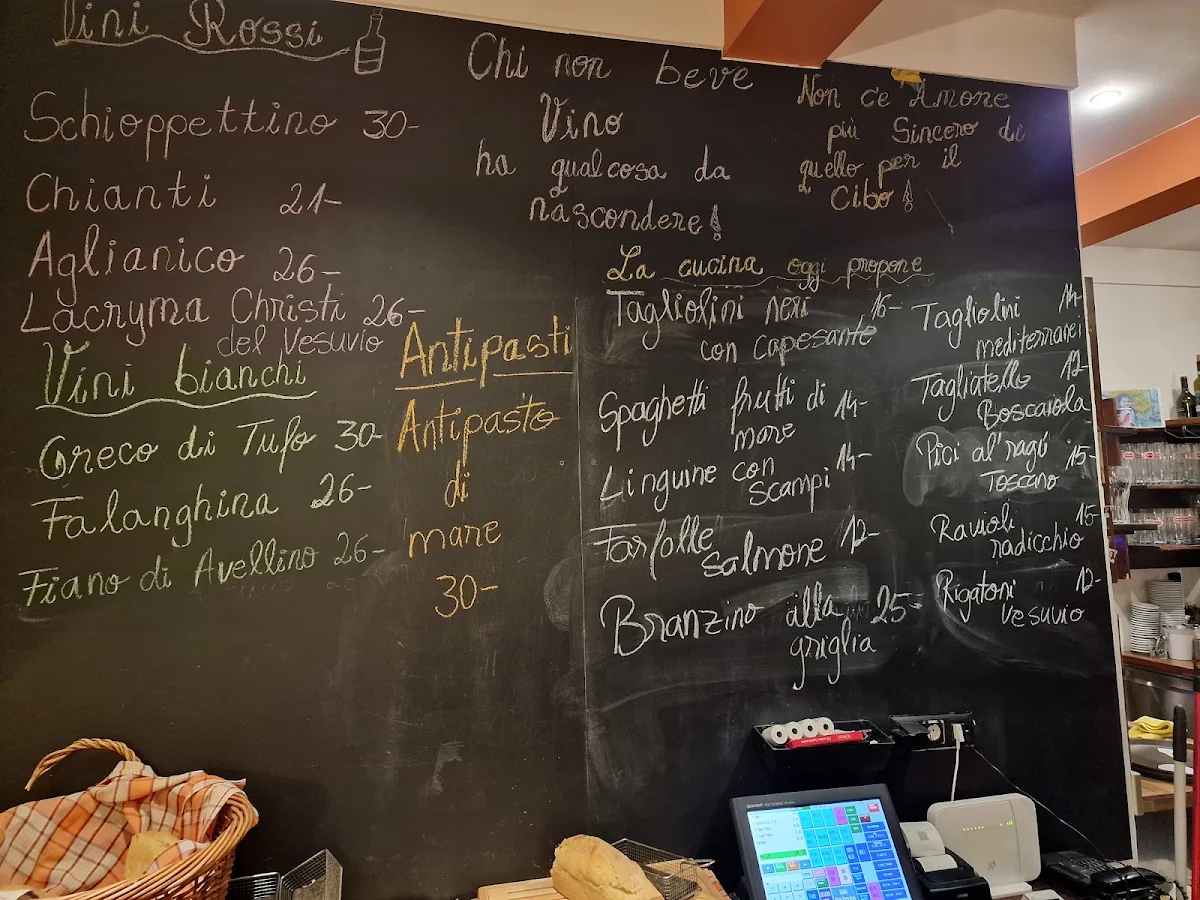 Vini Rossi
Schioppettino 30-
Chianti 21-
Aglianico 26-
Lacryma Christi 26-
del Vesuvio
Vini bianchi
Greco di Tufo 30-
Falanghina 26-
Fiano di Avellino 26-
Antipasti
Antipasto
di
mare
30-
Chi non beve
Vino
ha qualcosa da
nascondere!
Non c'e Amore
più Sincero di
quello per il
Cibo!
La cucina oggi propone
Tagliolini neri 16-
con capesante
Spaghetti frutti di 14-
mare
Linguine con 14-
Scampi
Farfalle 12-
salmone
Branzino alla 25-
griglia
Tagliolini 14-
mediterranei
Tagliatelle 12-
Boscaiola
Pici al'ragú 15-
Toscano
Ravioli 15-
radicchio
Rigatoni 12-
Vesuvio
SHARP